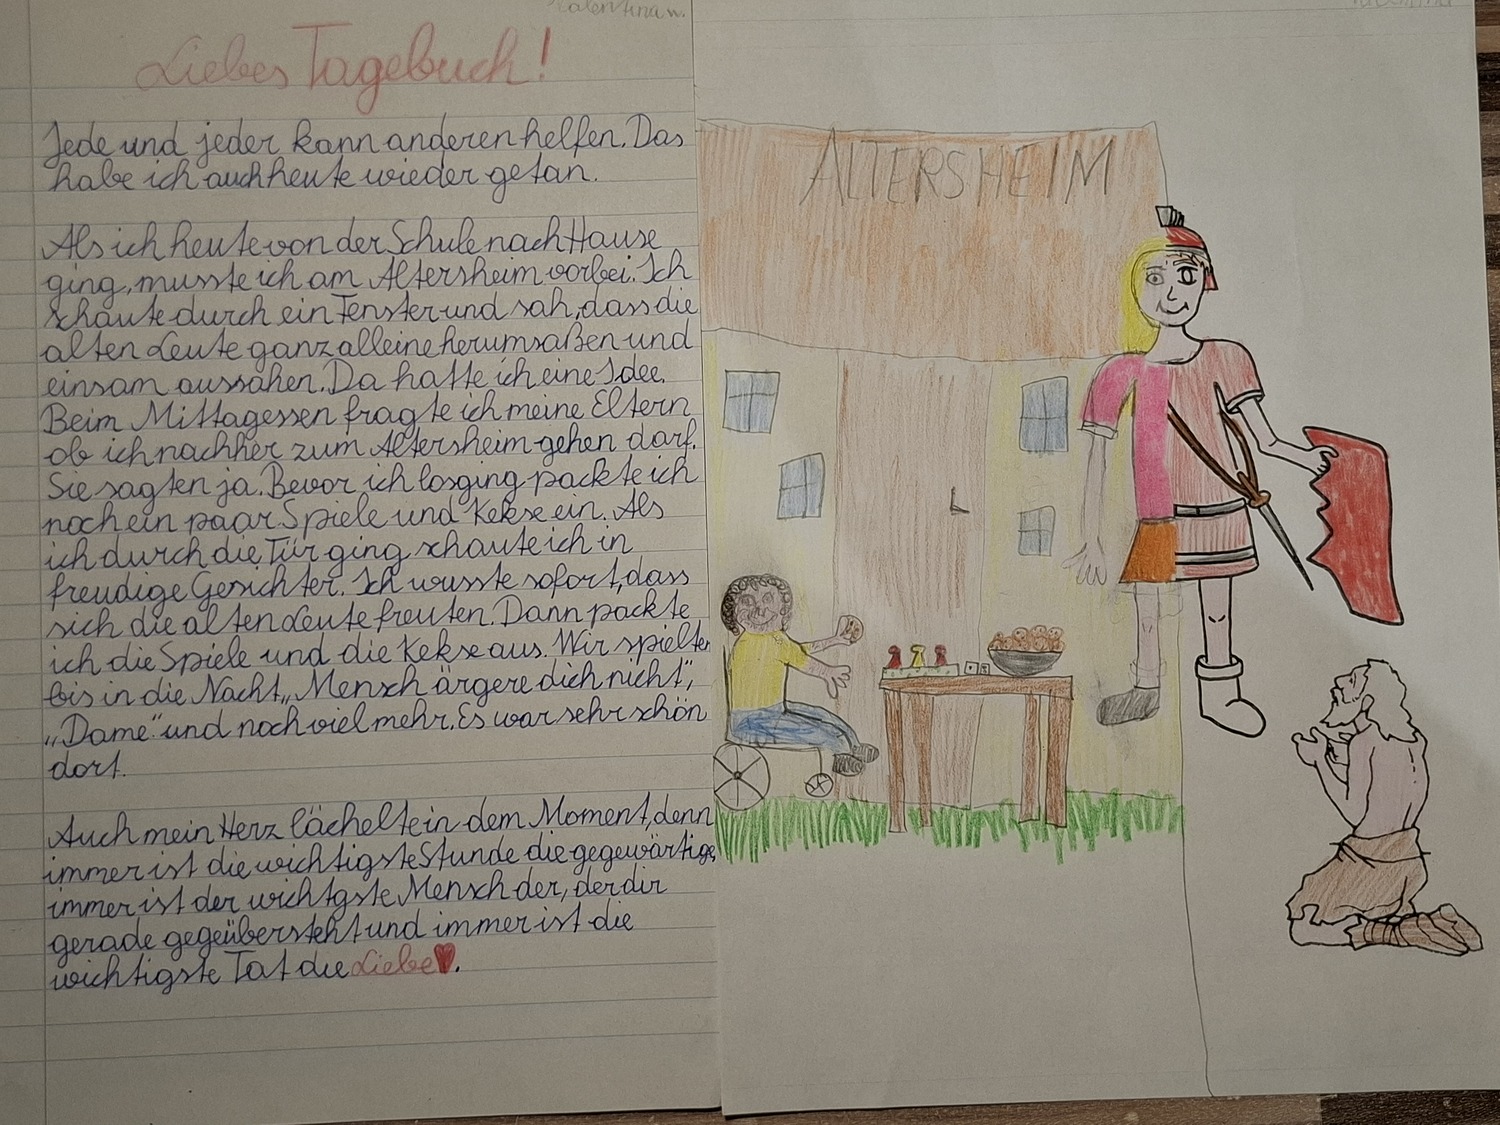 Valentina W.
Liebes Tagebuch!
Jede und jeder kann anderen helfen. Das
habe ich auch heute wieder getan.
Als ich heute von der Schule nach Hause
ging, musste ich am Altersheim vorbei. Ich
schaute durch ein Fenster und sah, dass die
alten Leute ganz alleine herumsaßen und
einsam aussahen. Da hatte ich eine Idee.
Beim Mittagessen fragte ich meine Eltern
ob ich nachher zum Altersheim gehen darf.
Sie sagten ja. Bevor ich losging packte ich
noch ein paar Spiele und Kekse ein. Als
ich durch die Tür ging schaute ich in
freudige Gesichter. Ich wusste sofort, dass
sich die alten Leute freuten. Dann packte
ich die Spiele und die Kekse aus. Wir spielten
bis in die Nacht „Mensch ärgere dich nicht",
„Dame" und noch viel mehr. Es war sehr schön
dort.
Auch mein Herz lächelte in dem Moment, denn
immer ist die wichtigste Stunde die gegenwärtige,
immer ist der wichtgste Mensch der, der dir
gerade gegeübersteht und immer ist die
wichtigste Tat die Liebe♥.
ALTERSHEIM